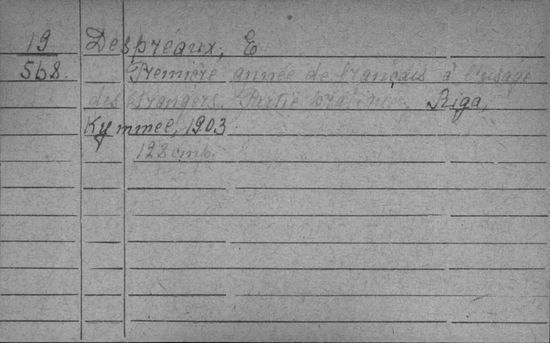 19 Despréaux, E
568. Première année de français à l'usage
des étrangers. Partie pratique. Riga,
Kymmel, 1903.
128 стр.